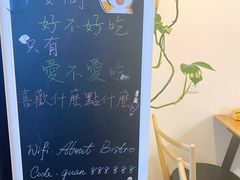 好不好吃
只有
愛不愛吃
喜歡什麼點什麼
Wifi. About Bistro
Code. guan 888888